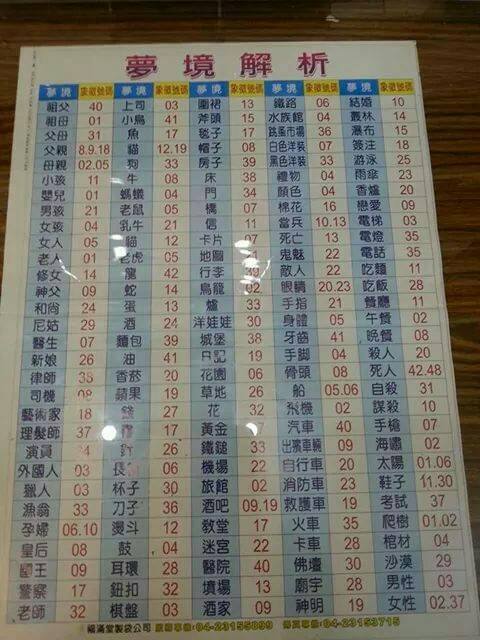 夢境解析
夢境 象徵號碼 夢境 象徵號碼 夢境 象徵號碼 夢境 象徵號碼 夢境 象徵號碼
祖父 40 上司 03 圍裙 13 鐵路 06 結婚 10
祖母 01 小鳥 41 斧頭 15 水族館 04 叢林 14
父母 31 魚 17 毯子 17 跳蚤市場 36 瀑布 15
父親 8.9.18 貓 12.19 帽子 08 白色洋裝 07 簽注 18
母親 02.05 狗 33 房子 39 黑色洋裝 33 游泳 25
小孩 11 牛 08 床 38 禮物 04 雨傘 23
嬰兒 01 螞蟻 04 門 34 顏色 04 香爐 20
男孩 21 老鼠 05 橋 07 棉花 16 戀愛 09
女孩 04 乳牛 21 信 11 當兵 10.13 電梯 03
女人 05 貓 12 卡片 07 死亡 13 電燈 35
老人 01 老虎 05 地圖 鬼魅 22 電話 35
修女 14 龍 42 行李 39 敵人 22 吃麵 11
神父 09 蛇 14 烏龍 02 眼睛 20.23 吃飯 28
和尚 24 蛋 13 爐 33 手指 21 餐廳 11
尼姑 29 酒 24 洋娃娃 30 身體 05 午餐 02
醫生 07 麵包 39 城堡 38 牙齒 41 晚餐 08
新娘 26 油 41 日記 19 手腳 04 殺人 20
律師 35 香菸 20 花園 06 骨頭 08 死人 42.48
司機 08 蘋果 19 草地 26 船 05.06 自殺 31
藝術家 18 錢 27 花 32 飛機 02 謀殺 10
理髮師 37 17 黃金 17 汽車 40 手槍 07
演員 24 針 26 鐵鎚 33 出殯車輛 09 海嘯 02
外國人 03 長 06 機場 22 自行車 20 太陽 01.06
獵人 03 杯子 30 旅館 02 消防車 23 鞋子 11.30
漁翁 33 刀子 36 酒吧 09.19 救護車 19 考試 37
孕婦 06.10 燙斗 12 教堂 17 火車 35 爬樹 01.02
皇后 08 鼓 04 迷宮 22 卡車 28 棺材 04
國王 09 耳環 28 醫院 40 佛壇 30 沙漠 29
警察 17 鈕扣 32 墳場 13 廟宇 28 男性 03
老師 32 棋盤 03 酒家 09 神明 19 女性 02.37
福滿堂製袋公司 服務專線:04-23155899 傳真專線:04-23153715